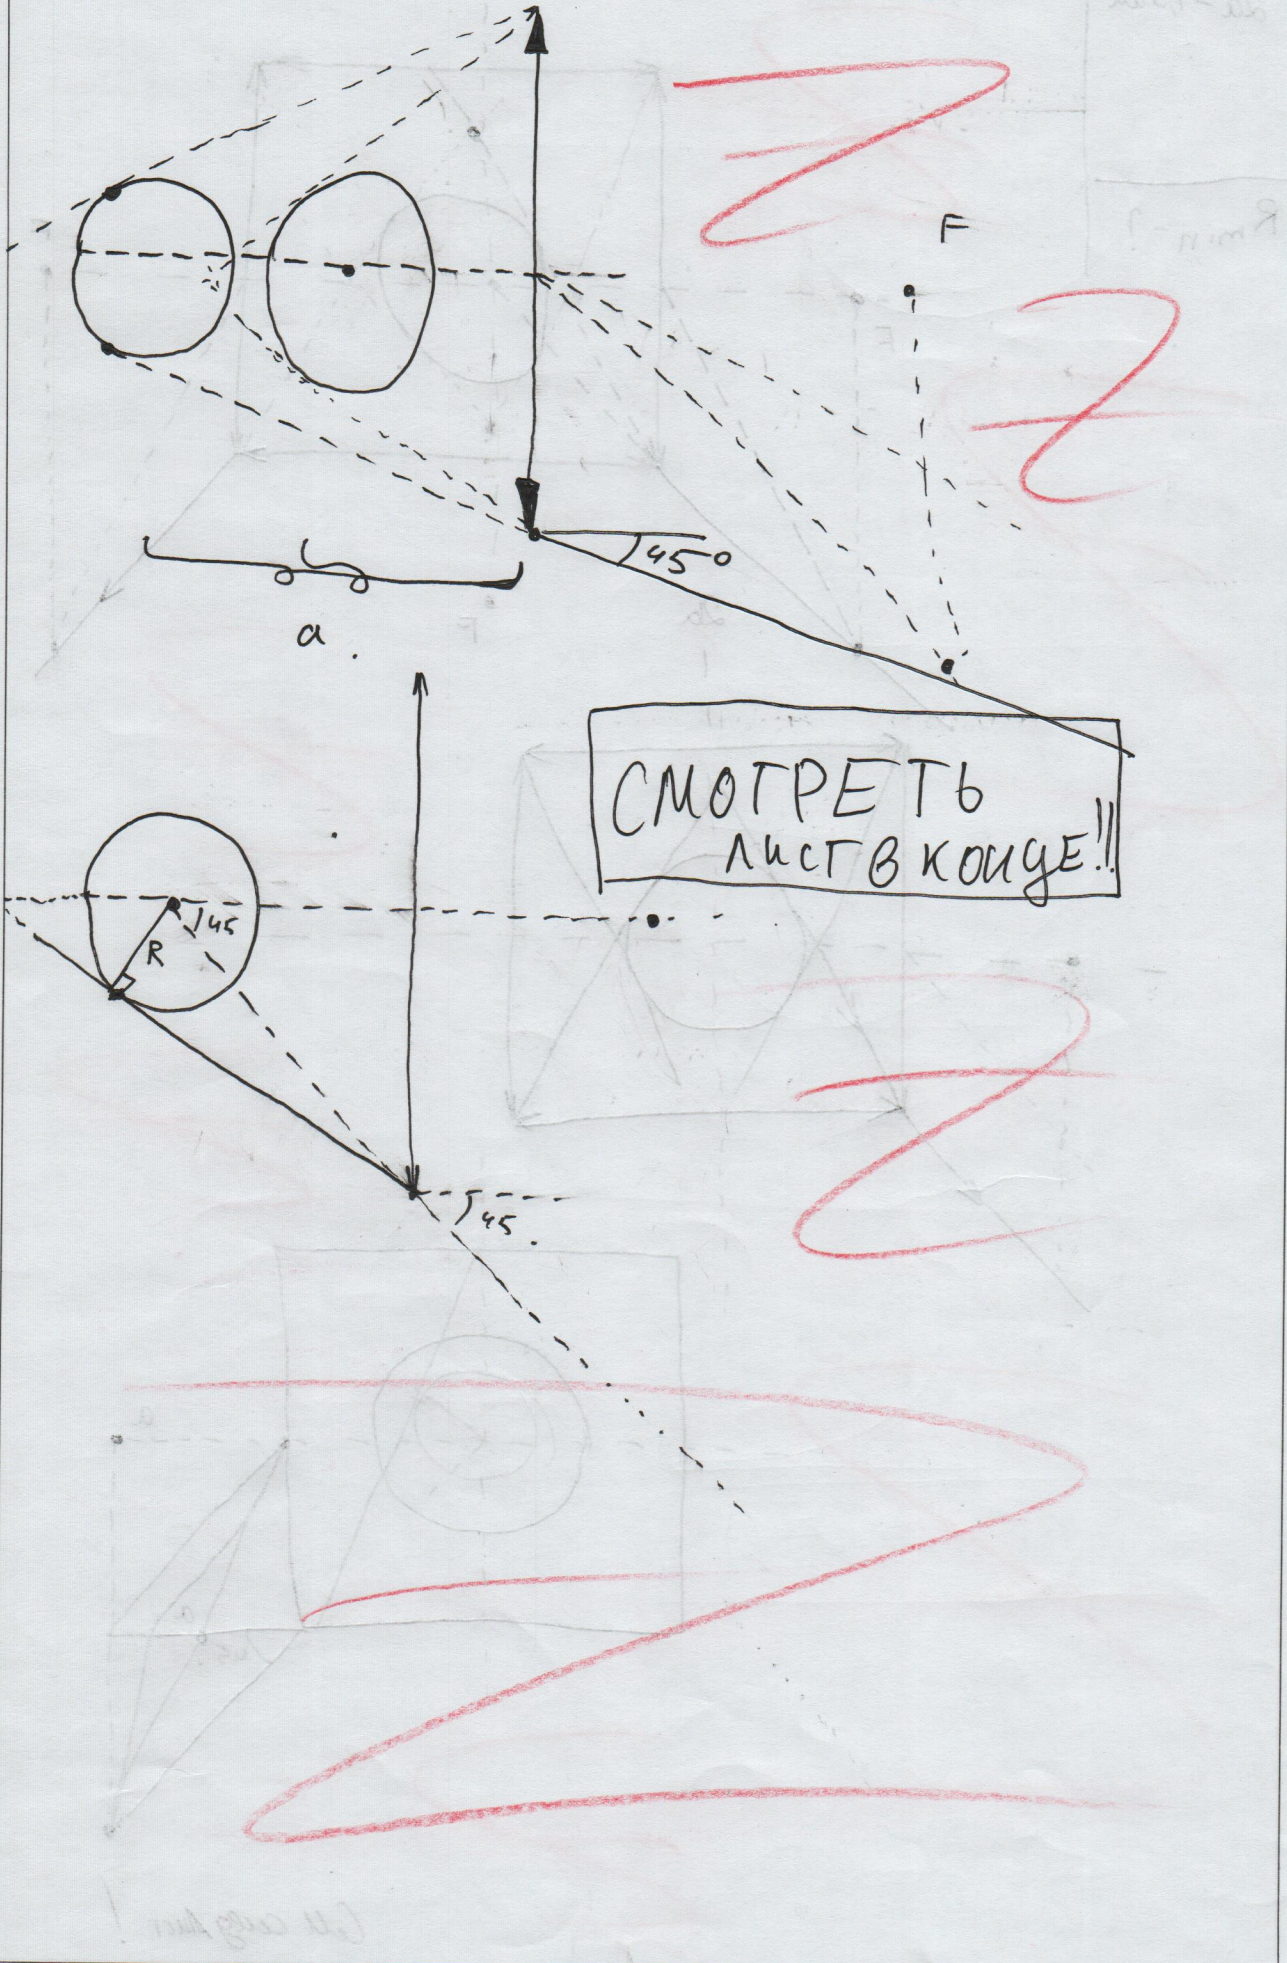 F
45°
a.
СМОТРЕТЬ
ЛИСТ В КОНЦЕ!!
45
R
45.